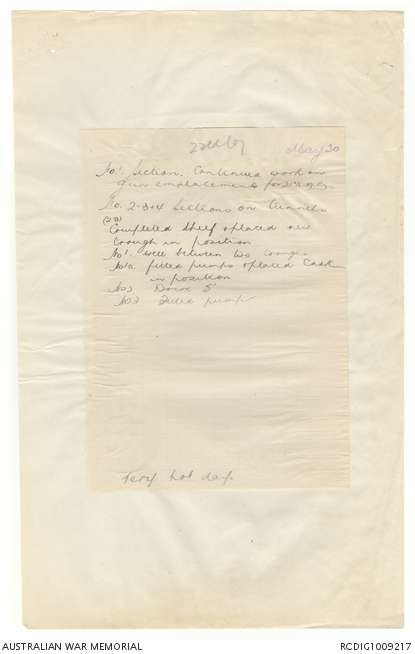 May 20
No 1 Section. Continued work on
gun emplacements for
No. 2-3+4 Sections on tunnels
Completed & placed
trough in position
No 1. well between two
fitted pumps & placed Cask
in position
No 3 Drove 5'
No 3 Fitted pump
Very hot day.
AUSTRALIAN WAR MEMORIAL
RCDIG1009217